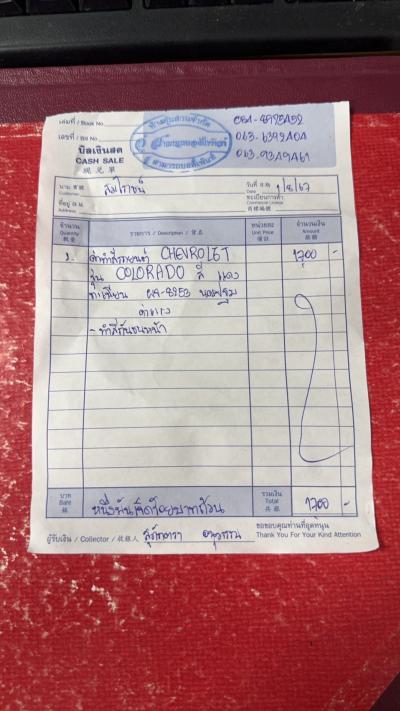 เล่มที่ / Book No.
เลขที่ / Bill No.
ห้างหุ้นส่วนจำกัด
081-8925452
063-6392404
063-9349461
บิลเงินสด
CASH SALE
現兌單
นาม 寶號
Customer
วันที่ 日期
Date
1/8/67
ที่อยู่ 住址
Address
ทะเบียนการค้า
Commercial License
商標編號
จำนวน
Quantity
數量
รายการ / Description / 貨名
หน่วยละ
Unit Price
價目
จำนวนเงิน
Amount
銀額
1. ค่าทำสีรถยนต์ CHEVROLET 1700 -
รุ่น COLORADO สี แดง
ทะเบียน นครปฐม
ค่าแรง
- ทำสีกันชนหน้า
บาท
Baht
銖
หนึ่งพันเจ็ดร้อยบาทถ้วน
รวมเงิน
Total
共銀
1700 -
ผู้รับเงิน / Collector / 收銀人
ขอขอบคุณท่านที่อุดหนุน
Thank You For Your Kind Attention